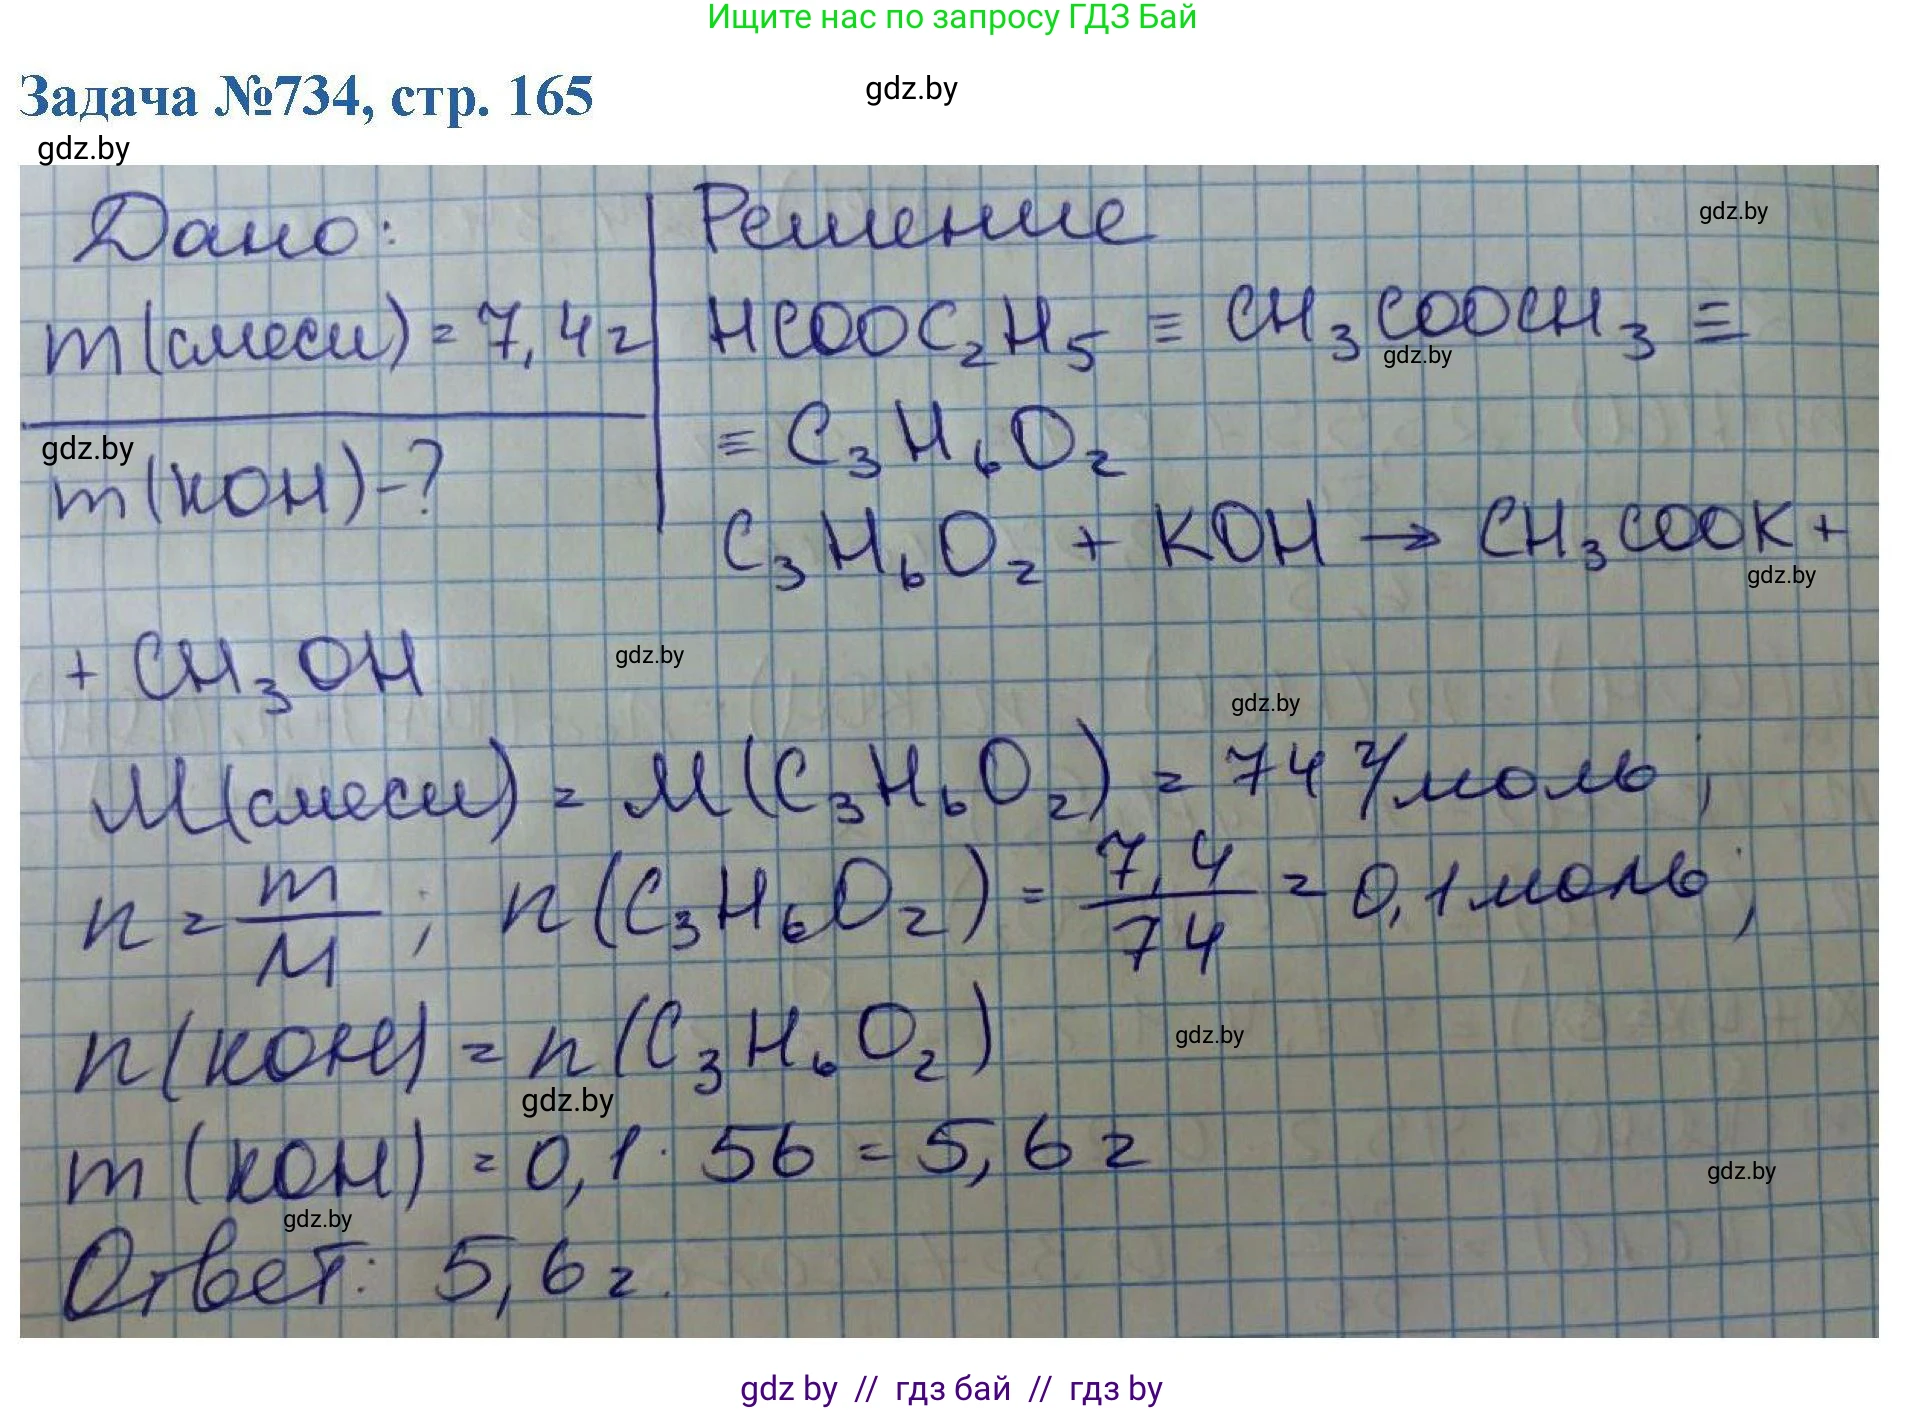 Ищите нас по запросу ГДЗ Бай
Задача №734, стр. 165
gdz.by
gdz.by
Дано:
Решение
gdz.by
m(смеси) = 7,4 г
HCOOC₂H₅ ≡ CH₃COOCH₃ ≡
gdz.by
≡ C₃H₆O₂
gdz.by
m(KOH) - ?
C₃H₆O₂ + KOH → CH₃COOK +
gdz.by
+ CH₃OH
gdz.by
gdz.by
M(смеси) = M(C₃H₆O₂) = 74 г/моль;
n = m/M; n(C₃H₆O₂) = 7,4/74 = 0,1 моль;
n(KOH) = n(C₃H₆O₂)
gdz.by
gdz.by
m(KOH) = 0,1 · 56 = 5,6 г
gdz.by
gdz.by
Ответ: 5,6 г.
gdz by // гдз бай // гдз by